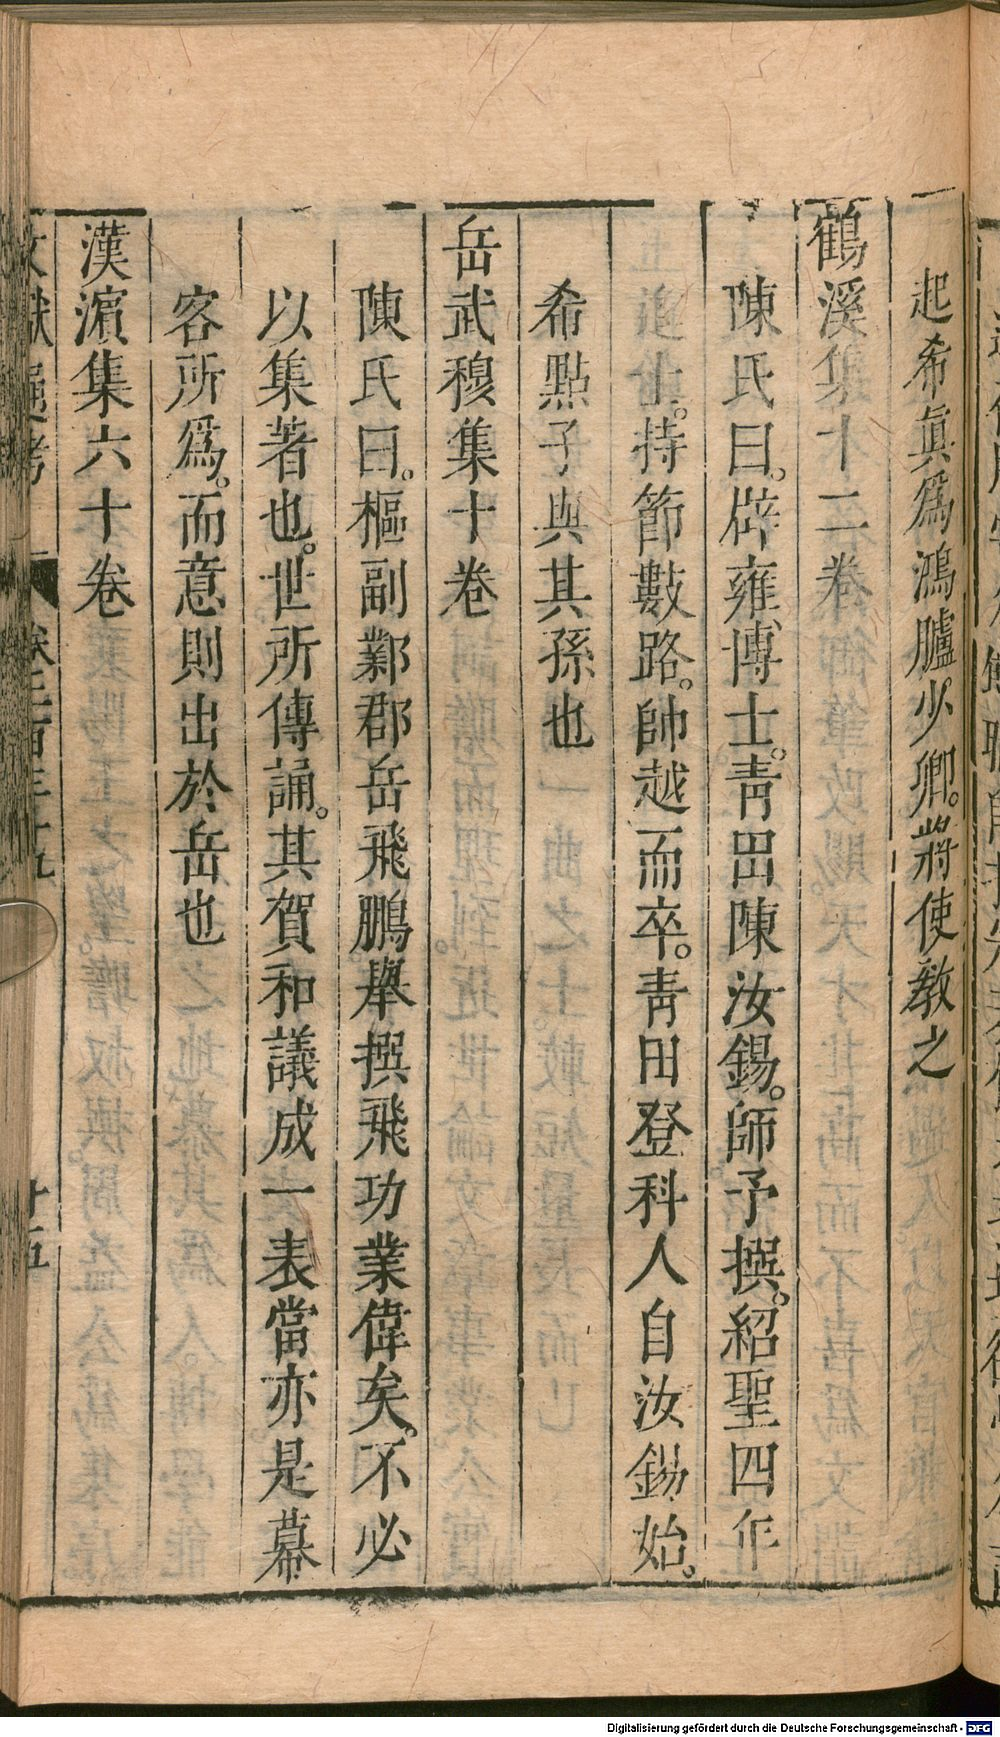 起希眞爲鴻臚少卿。將使敎之
鶴溪集十二卷
陳氏曰。辟雍博士。靑田陳汝錫。師予撰。紹聖四年
進士。持節數路。帥越而卒。靑田登科人自汝錫始。
希點子與其孫也
岳武穆集十卷
陳氏曰。樞副鄴郡岳飛鵬舉撰飛功業偉矣。不必
以集著也。世所傳誦。其賀和議成一表當亦是幕
客所爲。而意則出於岳也
漢濱集六十卷
文獻通考 卷二百三十九 十五
Digitalisierung gefördert durch die Deutsche Forschungsgemeinschaft - DFG